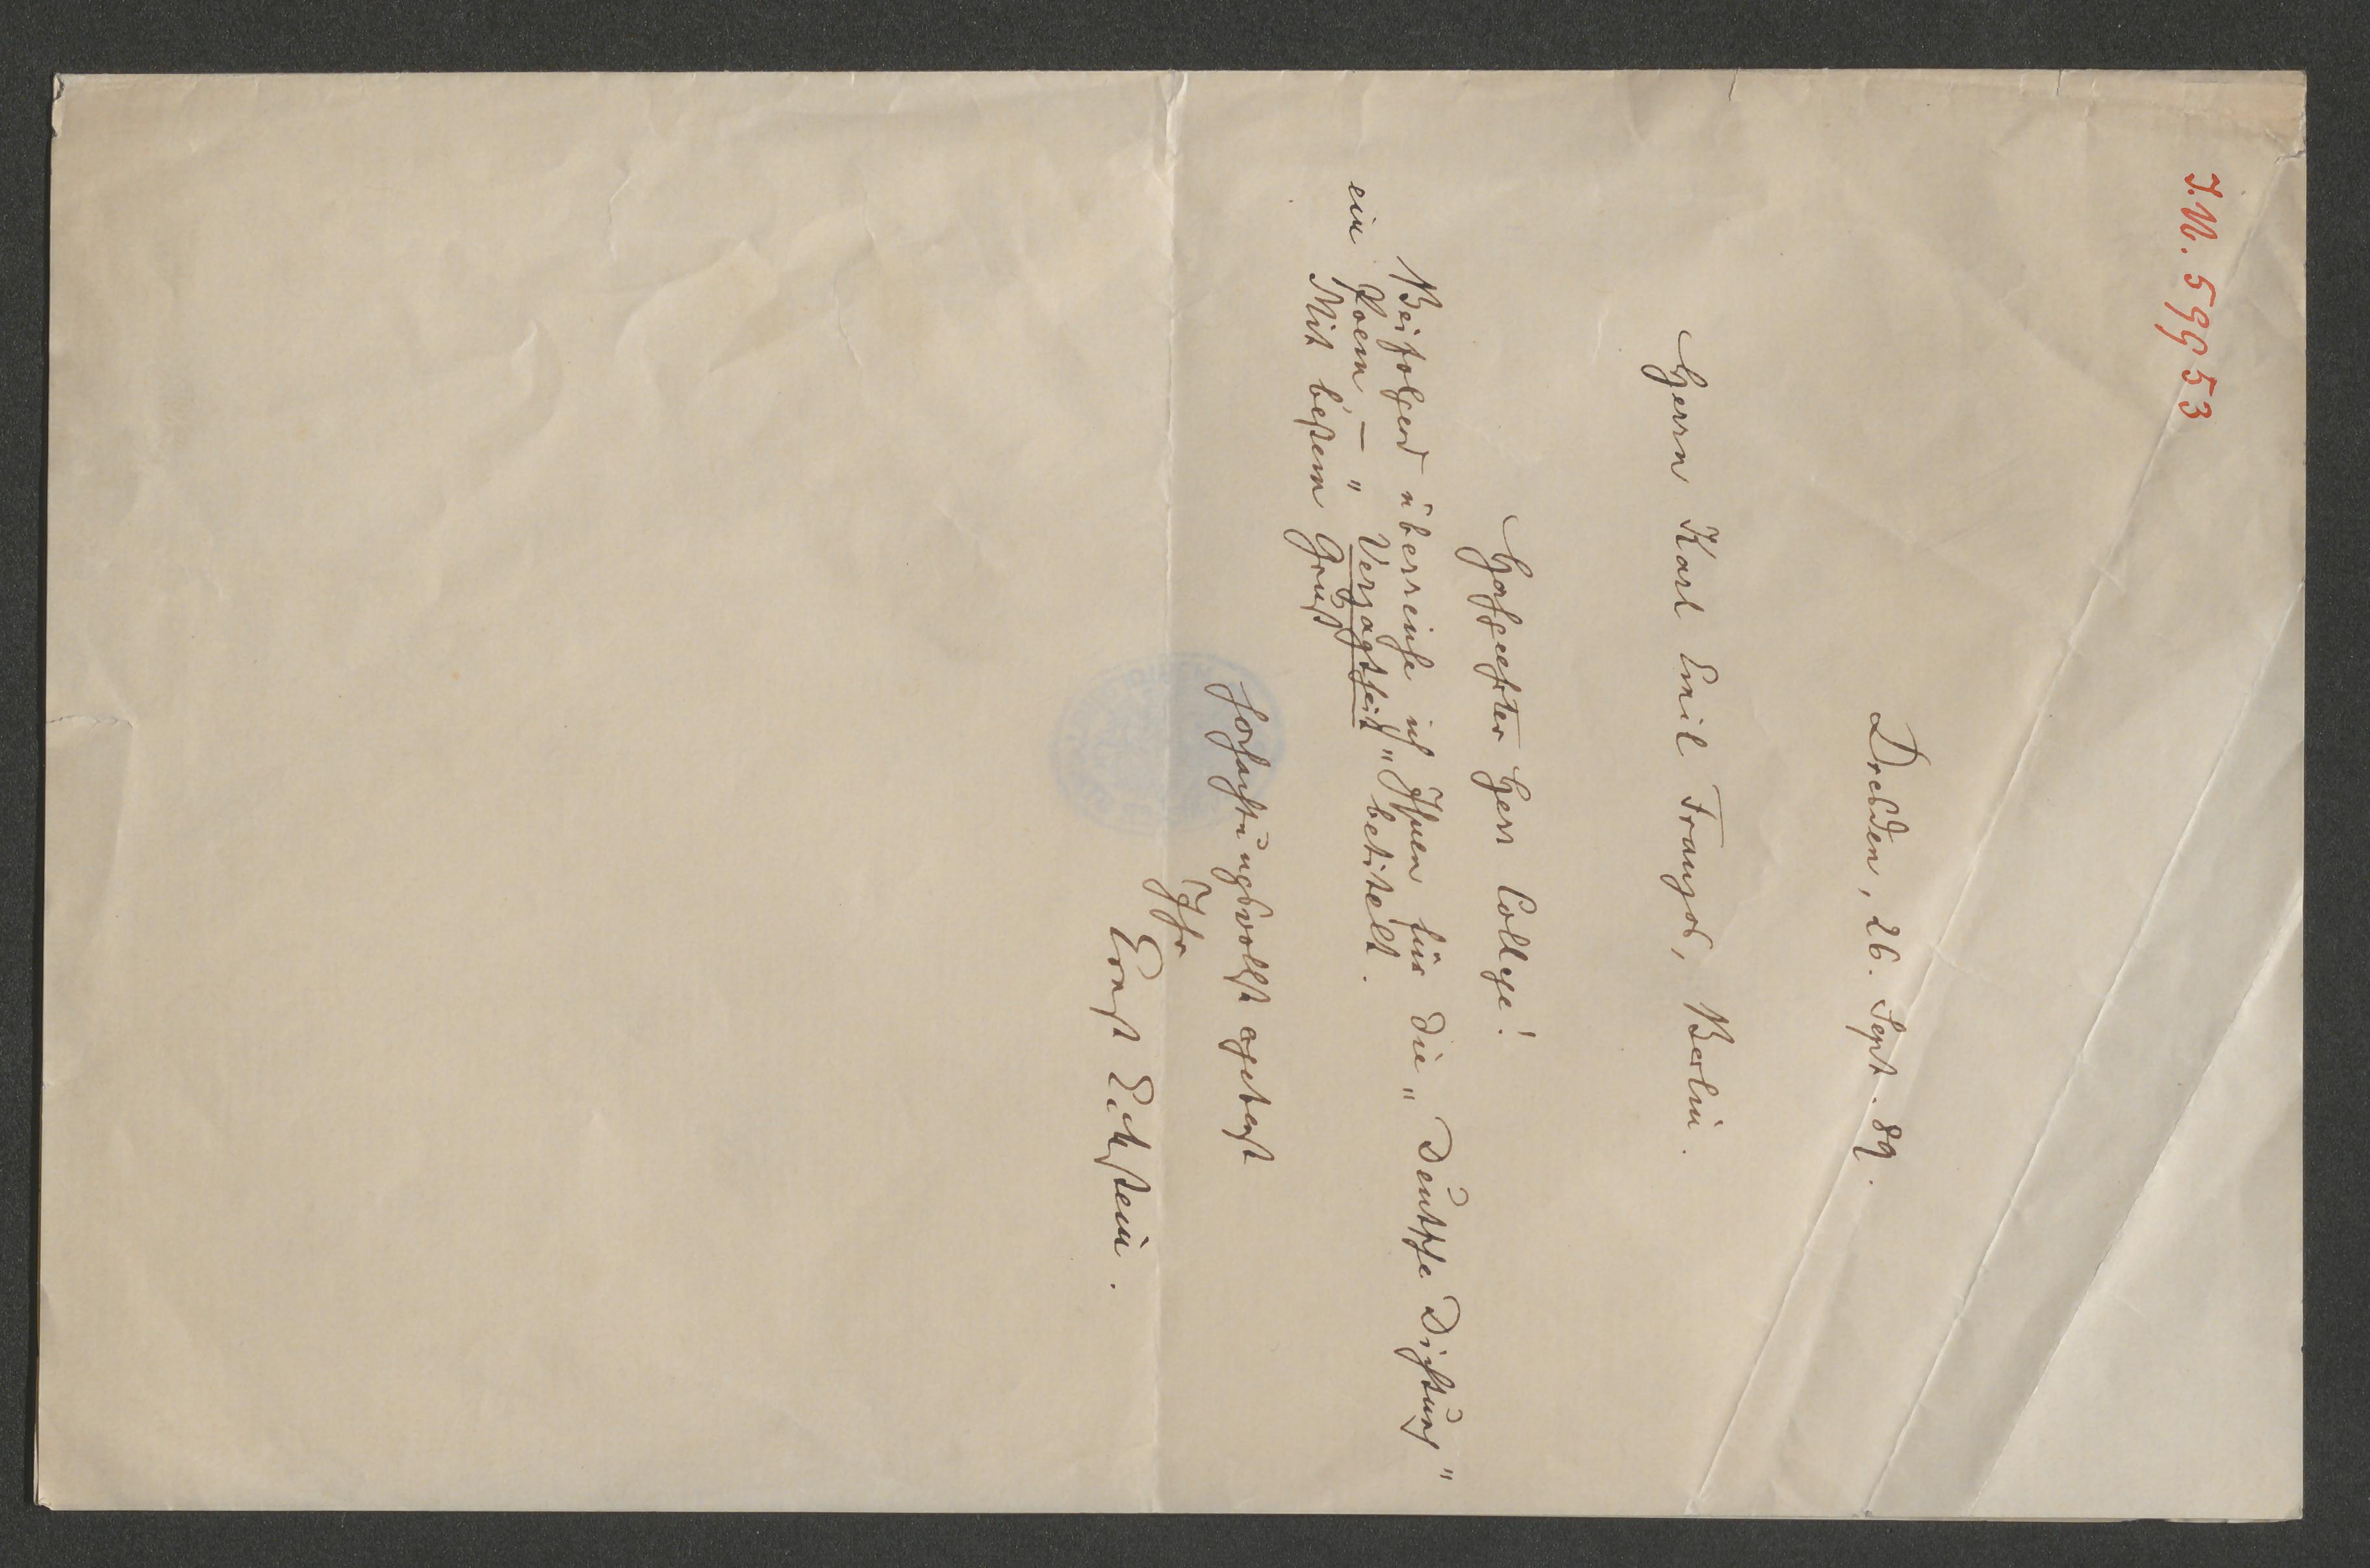 I.N. 59953
Dresden, 26. Sept. 89.
Herrn Karl Emil Franzos, Berlin.
Hochgeehrter Herr College!
Beifolgend überreiche ich Ihnen für die „Deutsche Dichtung"
ein Poem – „Verzagtheit" betitelt.
Mit bestem Gruß
hochachtungsvollst ergebenst
Ihr
Ernst Eckstein.